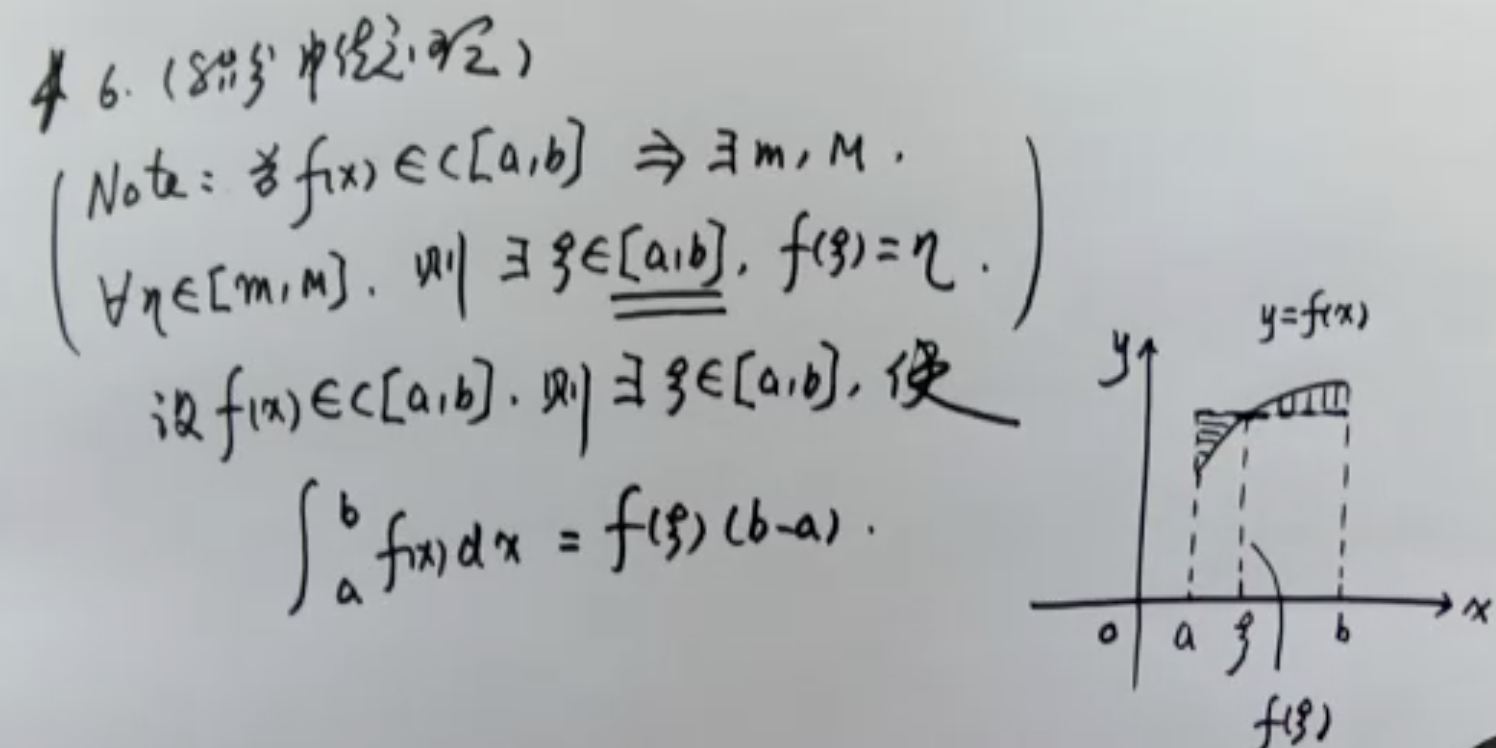 6. (积分中值定理)
Note: 若 f(x)∈C[a,b] ⇒ ∃m, M.
∀η∈[m,M]. 则 ∃ξ∈[a,b], f(ξ)=η.
设 f(x)∈C[a,b]. 则 ∃ξ∈[a,b], 使
∫_a^b f(x)dx = f(ξ)(b-a).
y=f(x)
y
x
o a ξ b
f(ξ)